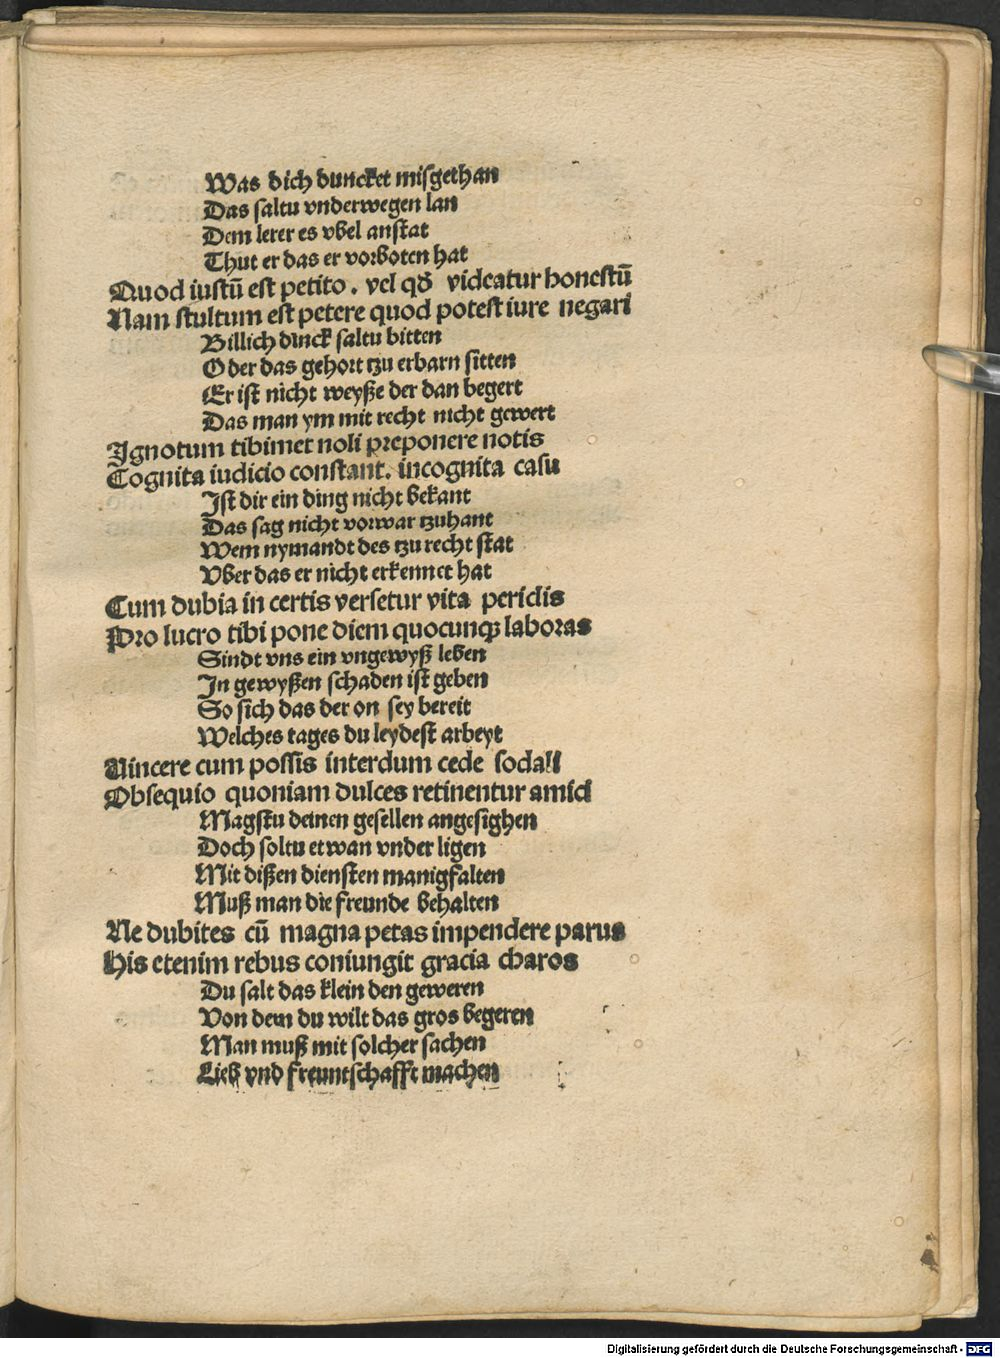 Was dich duncket misgethan
Das saltu vnderwegen lan
Dem lerer es vbel anstat
Thut er das er vorboten hat
Quod iustū est petito . vel qđ videatur honestū
Nam stultum est petere quod potest iure negari
Billich dinck saltu bitten
Oder das gehort tzu erbarn sitten
Er ist nicht weyße der dan begert
Das man ym mit recht nicht gewert
Ignotum tibimet noli preponere notis
Cognita iudicio constant. incognita casu
Ist dir ein ding nicht bekant
Das sag nicht vorwar tzuhant
Wem nymandt des tzu recht stat
Vber das er nicht erkennet hat
Cum dubia in certis versetur vita periclis
Pro lucro tibi pone diem quocunqꝫ laboras
Sindt vns ein vngewyß leben
In gewyßen schaden ist geben
So sich das der on sey bereit
Welches tages du leydest arbeyt
Uincere cum possis interdum cede sodali
Obsequio quoniam dulces retinentur amici
Magstu deinen gesellen angesighen
Doch soltu etwan vnder ligen
Mit dißen diensten manigfalten
Muß man die freunde behalten
Ne dubites cū magna petas impendere parua
His etenim rebus coniungit gracia charos
Du salt das klein den geweren
Von dem du wilt das gros begeren
Man muß mit solcher sachen
Lieb vnd freuntschafft machen
Digitalisierung gefördert durch die Deutsche Forschungsgemeinschaft - DFG